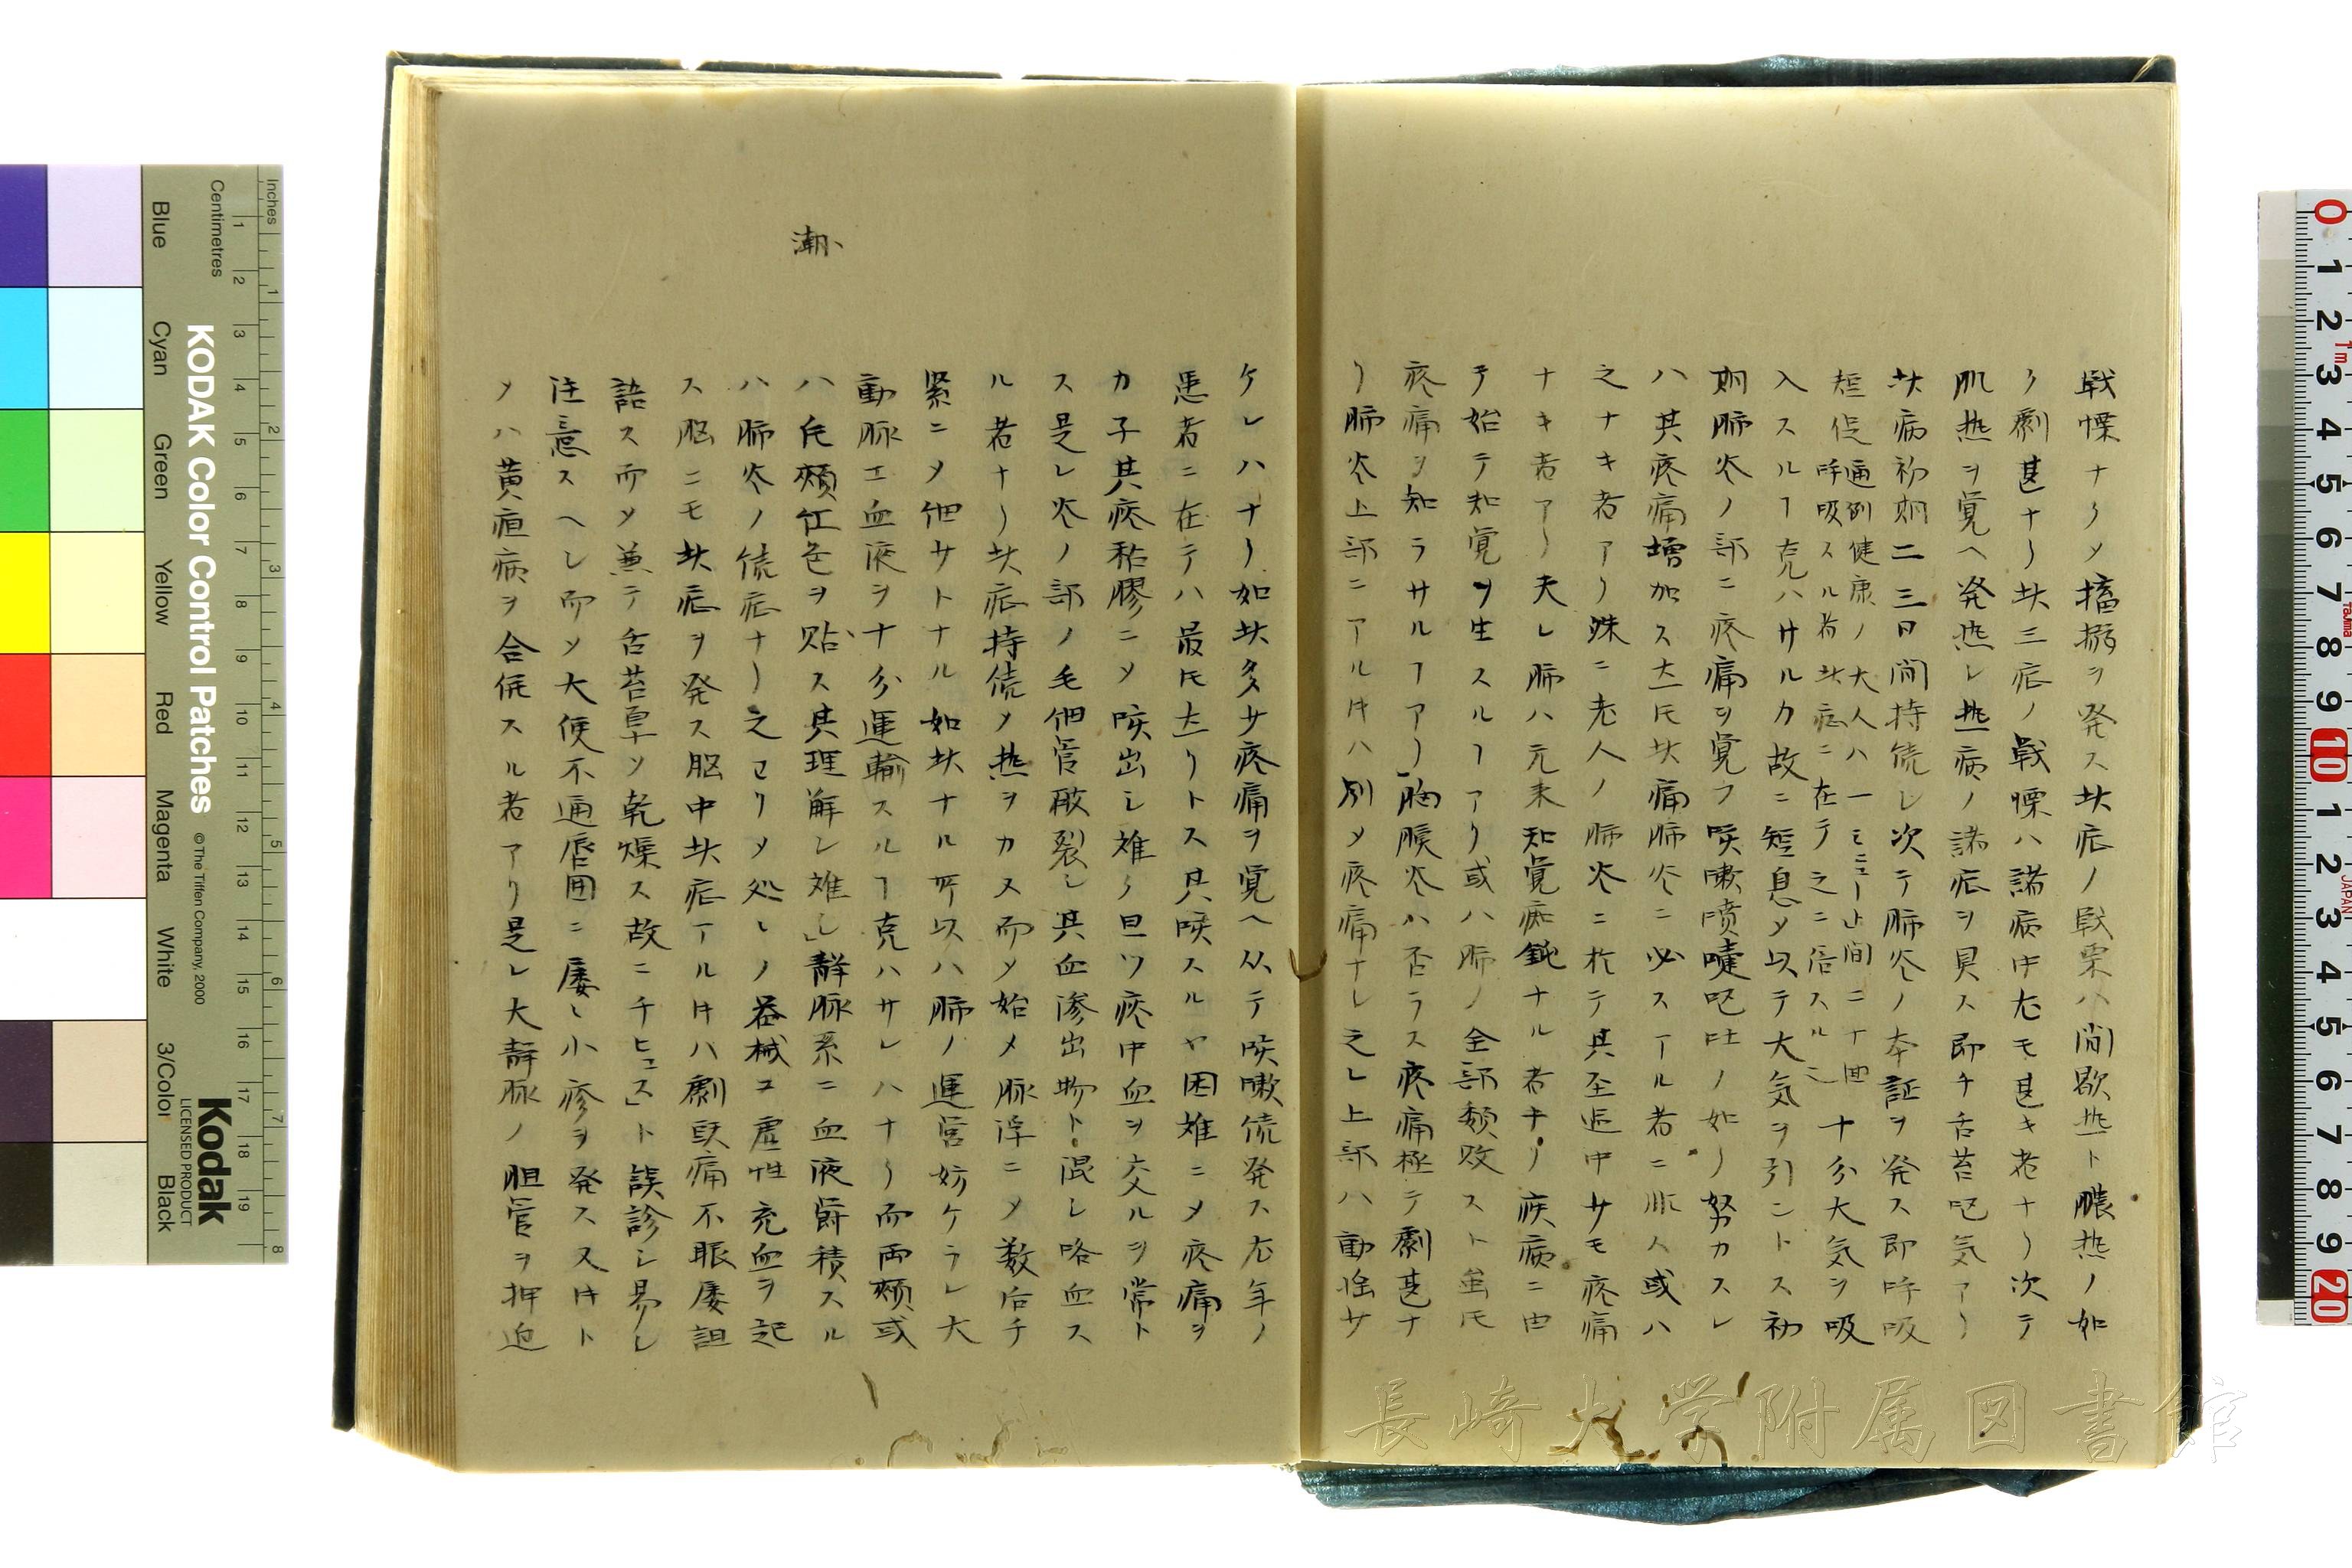 戦慄ナリメ搐搦ヲ発ス此症ノ戦栗ハ間歇热ト膿热ノ如
ク劇甚ナリ此三症ノ戦慄ハ諸病中尤モ甚キ者ナリ次テ
肌热ヲ覚ヘ発热レ热病ノ諸症ヲ具ス即チ舌苔呕気アリ
此病初期二三日間持続レ次テ肺炎ノ本証ヲ発ス即呼吸
短促
通例健康ノ大人ハ一ミニュート間ニ十四
呼吸スル者此症ニ在テ之ニ倍スル
十分大気ヲ吸
入スルヿ克ハサルカ故ニ短息メ以テ大気ヲ引ントス初
期肺炎ノ部ニ疼痛ヲ覚フ咳嗽噴嚏呕吐ノ如リ努力スレ
ハ其疼痛増加ス𪜈此痛肺炎ニ必スアル者ニ非ス或ハ
之ナキ者アリ殊ニ老人ノ肺炎ニ於テ其至重中サモ疼痛
ナキ者アリ夫レ肺ハ元来知覚痴鈍ナル者ナリ疾病ニ由
テ始テ知覚ヲ生スルヿアリ或ハ肺ノ全部頽敗スト虽𪜈
疼痛ヲ知ラサルヿアリ胸膜炎ハ否ラス疼痛極テ劇甚ナ
リ肺炎上部ニアル𪜈ハ別メ疼痛ナレ之レ上部ハ動揺サ
ケレハナリ如此多少疼痛ヲ覚ヘ从テ咳嗽続発ス尤年ノ
患者ニ在テハ最𪜈𪜈リトス其咳スルヤ困难ニメ疼痛ヲ
カ子其痰粘膠ニメ咳出レ难ク且ツ痰中血ヲ交ルヲ常ト
ス是レ炎ノ部ノ毛細管破裂レ其血滲出物ト混レ咯血ス
ル者ナリ此症持続メ热ヲカス而メ始メ脉浮ニメ数后チ
緊ニメ細サトナル如此ナル所以ハ肺ノ運営妨ケラレ大
動脉エ血液ヲ十分運輸スルヿ克ハサレハナリ而両頬或
ハ毛頬仜色ヲ贴ス其理解レ难レ」静脉系ニ血液欝積スル
潮
ハ肺炎ノ続症ナリ之ヨリメ処々ノ器械エ虚性充血ヲ起
ス脳ニモ此症ヲ発ス脳中此症アル𪜈ハ劇頭痛不眠屡詛
語ス而メ兼テ舌苔厚ソ乾燥ス故ニチヒュス」ト誤診レ易レ
注意スヘレ而メ大便不通唇囲ニ屡々小疹ヲ発ススルト
メハ黄疸病ヲ合併スル者アリ是レ大静脉ノ胆管ヲ押迫
KODAK Color Control Patches
© The Tiffen Company, 2000
Kodak
LICENSED PRODUCT
Inches
Centimetres
Blue
Cyan
Green
Yellow
Red
Magenta
White
3/Color
Black
長崎大学附属図書館
JAPAN